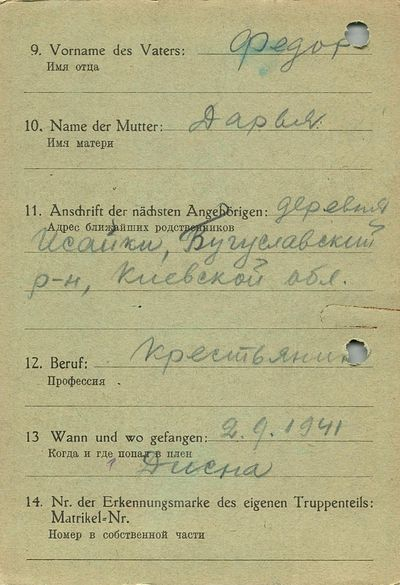 9. Vorname des Vaters: Федор
Имя отца
10. Name der Mutter: Дарья
Имя матери
11. Anschrift der nächsten Angehörigen: деревня
Адрес ближайших родственников
Исайки, Бугуславский
р-н, Киевской обл.
12. Beruf: Крестьянин
Профессия
13 Wann und wo gefangen: 2.9.1941
Когда и где попал в плен
Дисна
14. Nr. der Erkennungsmarke des eigenen Truppenteils:
Matrikel-Nr.
Номер в собственной части